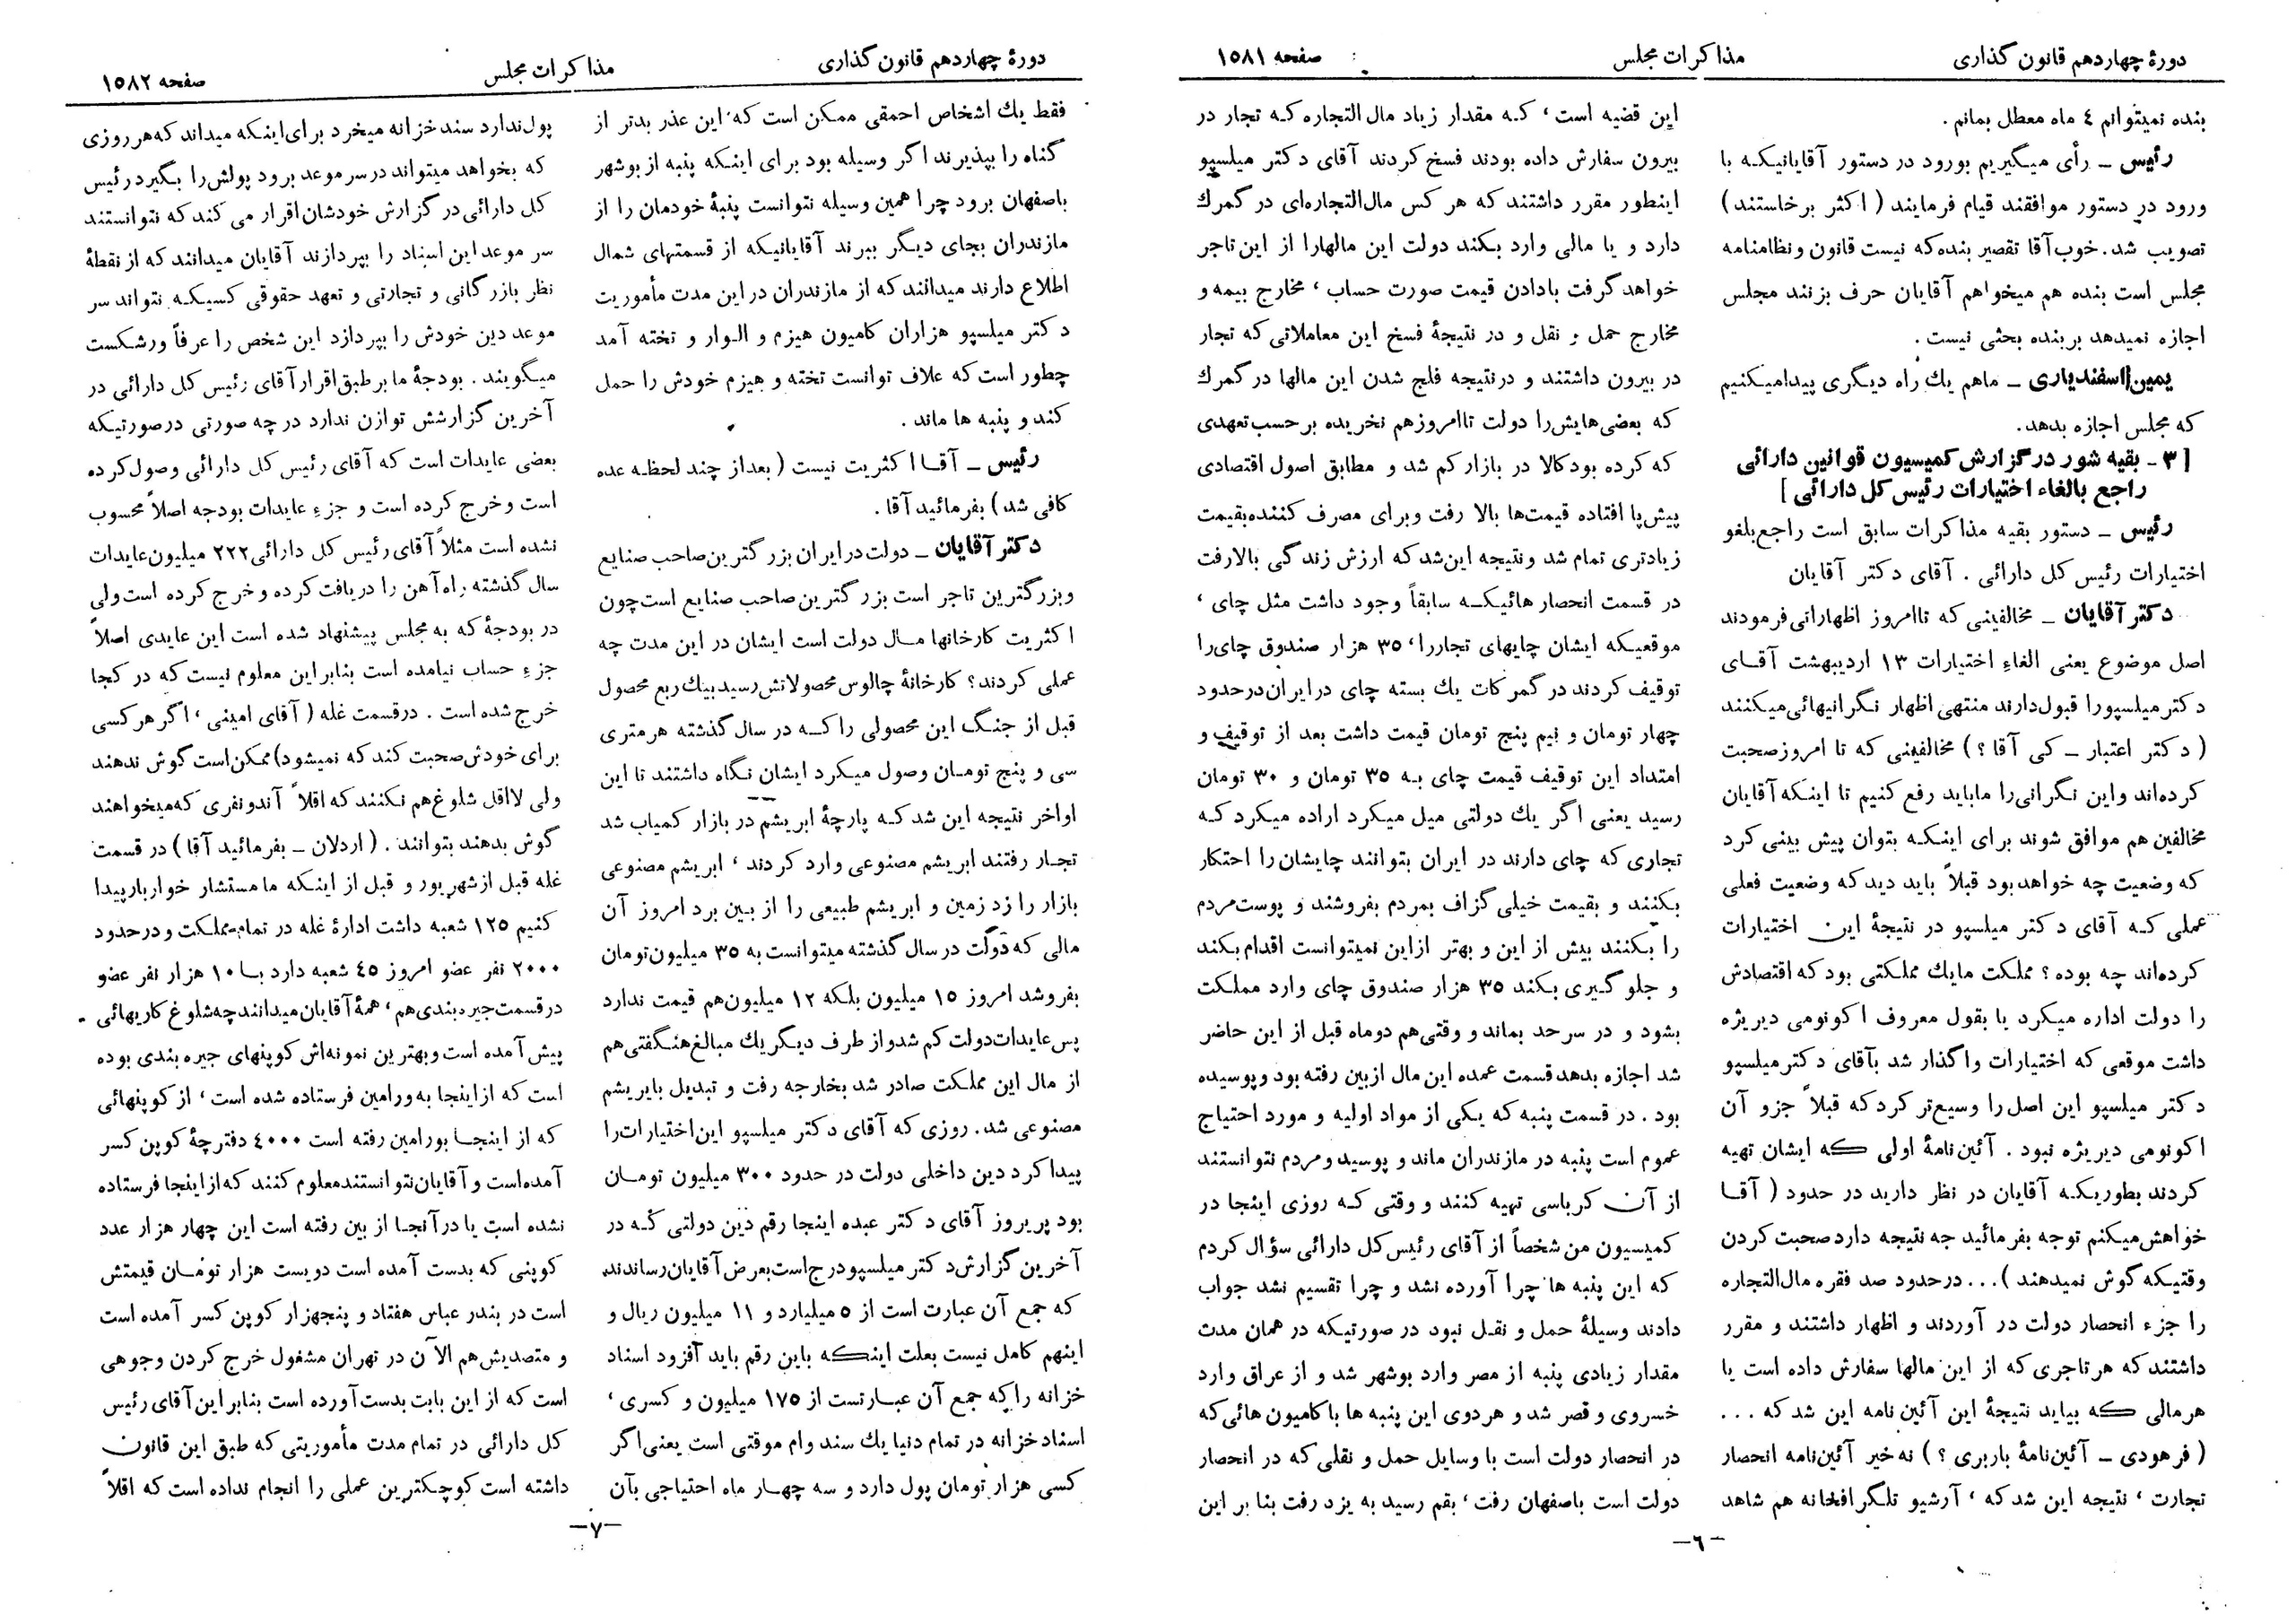 دورهٔ چهاردهم قانون گذاری
مذاکرات مجلس
صفحه ۱۵۸۱
بنده نمیتوانم ٤ ماه معطل بمانم .
رئیس ــ رأی میگیریم بورود در دستور آقایانیکه با
ورود در دستور موافقند قیام فرمایند ( اکثر برخاستند )
تصویب شد . خوب آقا تقصیر بنده که نیست قانون و نظامنامه
مجلس است بنده هم میخواهم آقایان حرف بزنند مجلس
اجازه نمیدهد بر بنده بحثی نیست .
یمین اسفندیاری ــ ما هم یك راه دیگری پیدا میکنیم
که مجلس اجازه بدهد .
[ ۳ ـ بقیه شور در گزارش کمیسیون قوانین دارائی
راجع بالغاء اختیارات رئیس کل دارائی ]
رئیس ــ دستور بقیه مذاکرات سابق است راجع بلغو
اختیارات رئیس کل دارائی . آقای دکتر آقایان
دکتر آقایان ــ مخالفینی که تا امروز اظهاراتی فرمودند
اصل موضوع یعنی الغاء اختیارات ۱۳ اردیبهشت آقای
دکتر میلسپو را قبول دارند منتهی اظهار نگرانیهائی میکنند
( دکتر اعتبار ــ کی آقا ؟ ) مخالفینی که تا امروز صحبت
کرده‌اند و این نگرانی را ما باید رفع کنیم تا اینکه آقایان
مخالفین هم موافق شوند برای اینکه بتوان پیش بینی کرد
که وضعیت چه خواهد بود قبلاً باید دید که وضعیت فعلی
عملی که آقای دکتر میلسپو در نتیجهٔ این اختیارات
کرده‌اند چه بوده ؟ مملکت ما یك مملکتی بود که اقتصادش
را دولت اداره میکرد یا بقول معروف اکونومی دیریژه
داشت موقعی که اختیارات واگذار شد بآقای دکتر میلسپو
دکتر میلسپو این اصل را وسیع‌تر کرد که قبلاً جزو آن
اکونومی دیریژه نبود . آئین‌نامهٔ اولی که ایشان تهیه
کردند بطوریکه آقایان در نظر دارید در حدود ( آقا
خواهش میکنم توجه بفرمائید چه نتیجه دارد صحبت کردن
وقتیکه گوش نمیدهند ) . . . در حدود صد فقره مال‌التجاره
را جزء انحصار دولت در آوردند و اظهار داشتند و مقرر
داشتند که هر تاجری که از این مالها سفارش داده است یا
هر مالی که بیاید نتیجهٔ این آئین نامه این شد که . . .
( فرهودی ــ آئین‌نامهٔ باربری ؟ ) نه خیر آئین‌نامه انحصار
تجارت ، نتیجه این شد که ، آرشیو تلگرافخانه هم شاهد
این قضیه است ، که مقدار زیاد مال التجاره که تجار در
بیرون سفارش داده بودند فسخ کردند آقای دکتر میلسپو
اینطور مقرر داشتند که هر کس مال‌التجاره‌ای در گمرك
دارد و یا مالی وارد بکند دولت این مالهارا از این تاجر
خواهد گرفت با دادن قیمت صورت حساب ، مخارج بیمه و
مخارج حمل و نقل و در نتیجهٔ فسخ این معاملاتی که تجار
در بیرون داشتند و در نتیجه فلج شدن این مالها در گمرك
که بعضی‌هایش را دولت تا امروز هم نخریده بر حسب تعهدی
که کرده بود کالا در بازار کم شد و مطابق اصول اقتصادی
پیش پا افتاده قیمت‌ها بالا رفت و برای مصرف کننده بقیمت
زیادتری تمام شد و نتیجه این شد که ارزش زندگی بالا رفت
در قسمت انحصار هائیکه سابقاً وجود داشت مثل چای ،
موقعیکه ایشان چایهای تجار را ، ۳۵ هزار صندوق چای را
توقیف کردند در گمرکات یك بسته چای در ایران در حدود
چهار تومان و نیم پنج تومان قیمت داشت بعد از توقیف و
امتداد این توقیف قیمت چای به ۳۵ تومان و ۳۰ تومان
رسید یعنی اگر یك دولتی میل میکرد اراده میکرد که
تجاری که چای دارند در ایران بتوانند چایشان را احتکار
بکنند و بقیمت خیلی گزاف بمردم بفروشند و پوست مردم
را بکنند بیش از این و بهتر از این نمیتوانست اقدام بکند
و جلوگیری بکند ۳۵ هزار صندوق چای وارد مملکت
بشود و در سر حد بماند و وقتی هم دو ماه قبل از این حاضر
شد اجازه بدهد قسمت عمده این مال از بین رفته بود و پوسیده
بود . در قسمت پنبه که یکی از مواد اولیه و مورد احتیاج
عموم است پنبه در مازندران ماند و پوسید و مردم نتوانستند
از آن کرباسی تهیه کنند و وقتی که روزی اینجا در
کمیسیون من شخصاً از آقای رئیس کل دارائی سؤال کردم
که این پنبه ها چرا آورده نشد و چرا تقسیم نشد جواب
دادند وسیلهٔ حمل و نقل نبود در صورتیکه در همان مدت
مقدار زیادی پنبه از مصر وارد بوشهر شد و از عراق وارد
خسروی و قصر شد و هر دوی این پنبه ها با کامیون هائی که
در انحصار دولت است با وسایل حمل و نقلی که در انحصار
دولت است باصفهان رفت ، بقم رسید به یزد رفت بنا بر این
ــ ٦ ــ
دورهٔ چهاردهم قانون گذاری
مذاکرات مجلس
صفحه ۱۵۸۲
فقط یك اشخاص احمقی ممکن است که این عذر بدتر از
گناه را بپذیرند اگر وسیله بود برای اینکه پنبه از بوشهر
باصفهان برود چرا همین وسیله نتوانست پنبهٔ خودمان را از
مازندران بجای دیگر ببرند آقایانیکه از قسمتهای شمال
اطلاع دارند میدانند که از مازندران در این مدت مأموریت
دکتر میلسپو هزاران کامیون هیزم و الوار و تخته آمد
چطور است که علاف توانست تخته و هیزم خودش را حمل
کند و پنبه ها ماند .
رئیس ــ آقا اکثریت نیست ( بعد از چند لحظه عده
کافی شد ) بفرمائید آقا .
دکتر آقایان ــ دولت در ایران بزرگترین صاحب صنایع
و بزرگترین تاجر است بزرگترین صاحب صنایع است چون
اکثریت کارخانها مال دولت است ایشان در این مدت چه
عملی کردند ؟ کارخانهٔ چالوس محصولاتش رسید بیك ربع محصول
قبل از جنگ این محصولی را که در سال گذشته هر متری
سی و پنج تومان وصول میکرد ایشان نگاه داشتند تا این
اواخر نتیجه این شد که پارچهٔ ابریشم در بازار کمیاب شد
تجار رفتند ابریشم مصنوعی وارد کردند ، ابریشم مصنوعی
بازار را زد زمین و ابریشم طبیعی را از بین برد امروز آن
مالی که دولت در سال گذشته میتوانست به ۳۵ میلیون تومان
بفروشد امروز ۱۵ میلیون بلکه ۱۲ میلیون هم قیمت ندارد
پس عایدات دولت کم شد و از طرف دیگر یك مبالغ هنگفتی هم
از مال این مملکت صادر شد بخارجه رفت و تبدیل بابریشم
مصنوعی شد . روزی که آقای دکتر میلسپو این اختیارات را
پیدا کرد دین داخلی دولت در حدود ۳۰۰ میلیون تومان
بود پریروز آقای دکتر عبده اینجا رقم دین دولتی که در
آخرین گزارش دکتر میلسپو درج است بعرض آقایان رساندند
که جمع آن عبارت است از ۵ میلیارد و ۱۱ میلیون ریال و
اینهم کامل نیست بعلت اینکه باین رقم باید افزود اسناد
خزانه را که جمع آن عبارتست از ۱۷۵ میلیون و کسری ،
اسناد خزانه در تمام دنیا یك سند وام موقتی است یعنی اگر
کسی هزار تومان پول دارد و سه چهار ماه احتیاجی بآن
پول ندارد سند خزانه میخرد برای اینکه میداند که هر روزی
که بخواهد میتواند در سر موعد برود پولش را بگیرد رئیس
کل دارائی در گزارش خودشان اقرار می کند که نتوانستند
سر موعد این اسناد را بپردازند آقایان میدانند که از نقطهٔ
نظر بازرگانی و تجارتی و تعهد حقوقی کسیکه نتواند سر
موعد دین خودش را بپردازد این شخص را عرفاً ورشکست
میگویند . بودجهٔ ما بر طبق اقرار آقای رئیس کل دارائی در
آخرین گزارشش توازن ندارد در چه صورتی در صورتیکه
بعضی عایدات است که آقای رئیس کل دارائی وصول کرده
است و خرج کرده است و جزء عایدات بودجه اصلاً محسوب
نشده است مثلاً آقای رئیس کل دارائی ۲۲۲ میلیون عایدات
سال گذشته راه آهن را دریافت کرده و خرج کرده است ولی
در بودجهٔ که به مجلس پیشنهاد شده است این عایدی اصلاً
جزء حساب نیامده است بنابراین معلوم نیست که در کجا
خرج شده است . در قسمت غله ( آقای امینی ، اگر هر کسی
برای خودش صحبت کند که نمیشود) ممکن است گوش ندهند
ولی لااقل شلوغ هم نکنند که اقلاً آن دو نفری که میخواهند
گوش بدهند بتوانند . ( اردلان ــ بفرمائید آقا ) در قسمت
غله قبل از شهریور و قبل از اینکه ما مستشار خواربار پیدا
کنیم ۱۲۵ شعبه داشت ادارهٔ غله در تمام مملکت و در حدود
۲۰۰۰ نفر عضو امروز ٤۵ شعبه دارد با ۱۰ هزار نفر عضو
در قسمت جیره‌بندی هم ، همهٔ آقایان میدانند چه شلوغ کاریهائی
پیش آمده است و بهترین نمونه‌اش کوپنهای جیره بندی بوده
است که از اینجا به ورامین فرستاده شده است ، از کوپنهائی
که از اینجا بورامین رفته است ٤۰۰۰ دفترچهٔ کوپن کسر
آمده است و آقایان نتوانستند معلوم کنند که از اینجا فرستاده
نشده است یا در آنجا از بین رفته است این چهار هزار عدد
کوپنی که بدست آمده است دویست هزار تومان قیمتش
است در بندر عباس هفتاد و پنجهزار کوپن کسر آمده است
و متصدیش هم الآن در تهران مشغول خرج کردن وجوهی
است که از این بابت بدست آورده است بنابراین آقای رئیس
کل دارائی در تمام مدت مأموریتی که طبق این قانون
داشته است کوچکترین عملی را انجام نداده است که اقلاً
ــ ۷ ــ